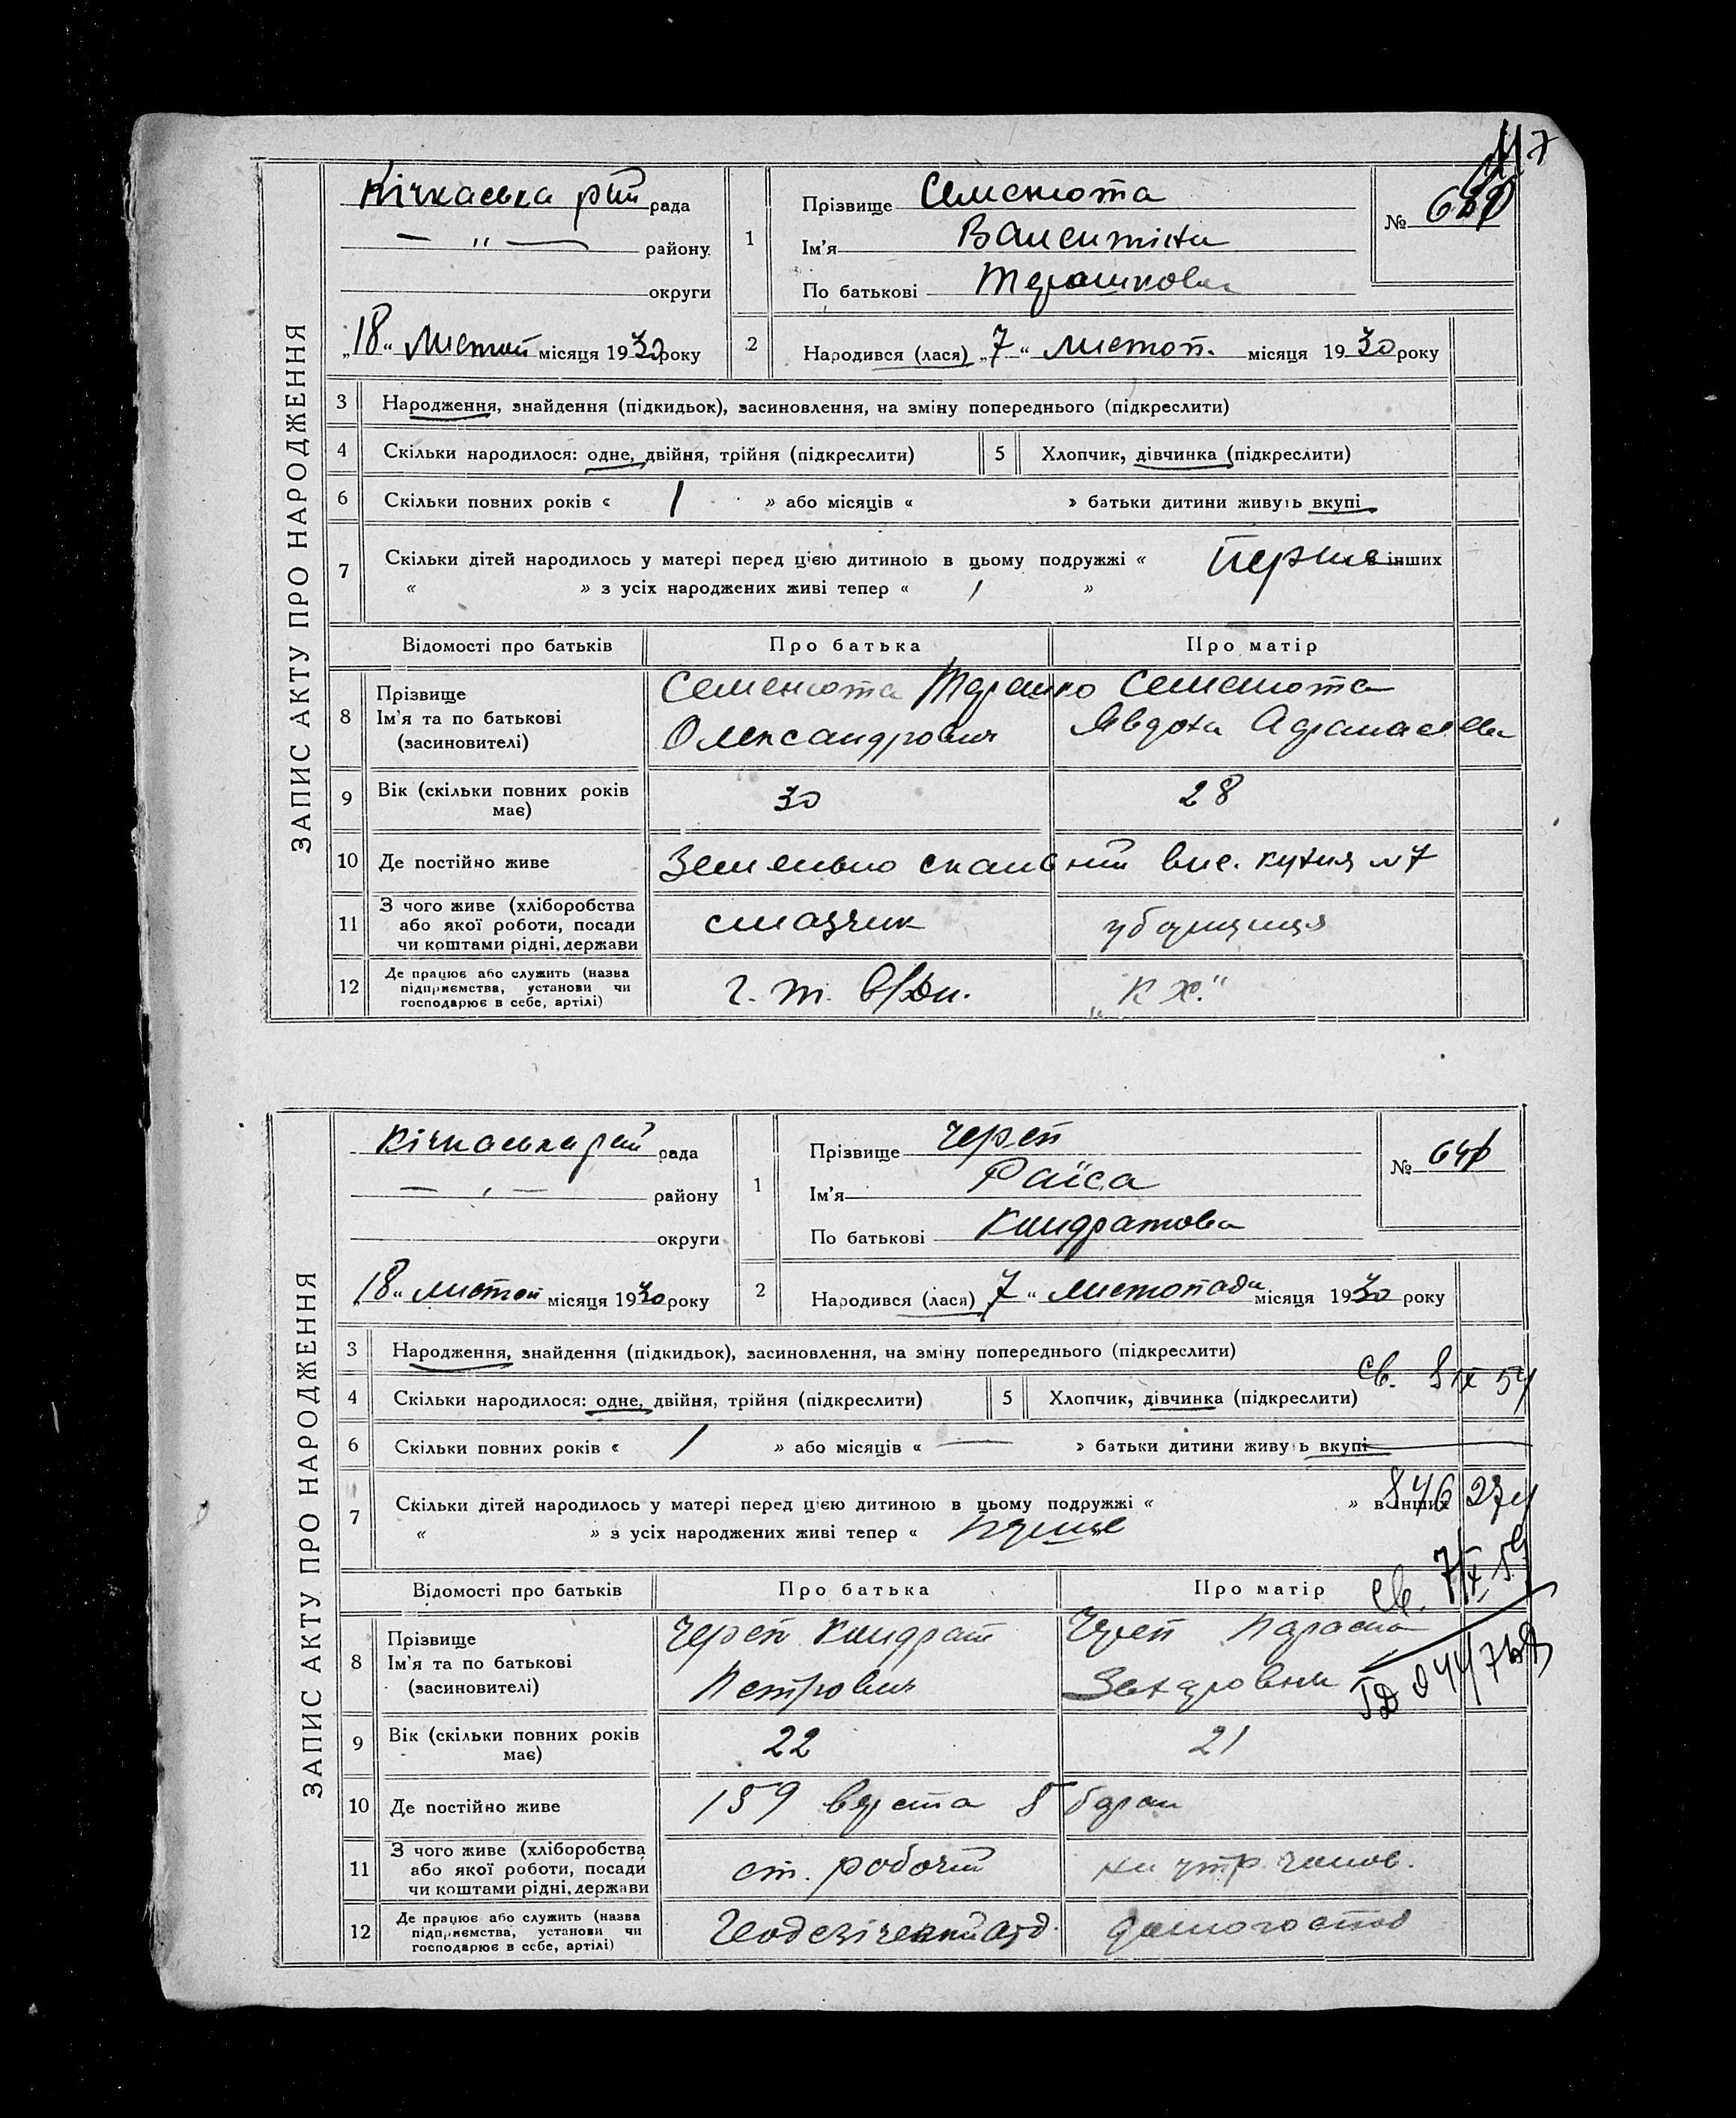 ЗАПИС АКТУ ПРО НАРОДЖЕННЯ
Кічкаська рай рада
— " — району
округи
„18" Листоп місяця 1930 року
1
Прізвище Семенюта
Ім'я Валентина
По батькові
№
2 Народився (лася) „7" листоп. місяця 1930 року
3 Народження, знайдення (підкидьок), засиновлення, на зміну попереднього (підкреслити)
4 Скільки народилося: одне, двійня, трійня (підкреслити) 5 Хлопчик, дівчинка (підкреслити)
6 Скільки повних років « 1 » або місяців « » батьки дитини живуть вкупі
7 Скільки дітей народилось у матері перед цією дитиною в цьому подружжі « перше в інших
« » з усіх народжених живі тепер « 1 »
Відомості про батьків Про батька Про матір
8 Прізвище
Ім'я та по батькові
(засновителі)
Семенюта
Олександрович
Семенюта
Явдоха
9 Вік (скільки повних років має) 30 28
10 Де постійно живе вис. кухня №7
11 З чого живе (хліборобства або якої роботи, посади чи коштами рідні, держави смазчик убориция
12 Де працює або служить (назва підприємства, установи чи господарює в себе, артілі) „К Х."
ЗАПИС АКТУ ПРО НАРОДЖЕННЯ
Кічкаська рай рада
— " — району
округи
„18" листоп місяця 1930 року
1
Прізвище Череп
Ім'я Раїса
По батькові Кіндратова
№
2 Народився (лася) 7 " листопада місяця 1930 року
3 Народження, знайдення (підкидьок), засиновлення, на зміну попереднього (підкреслити)
4 Скільки народилося: одне, двійня, трійня (підкреслити) 5 Хлопчик, дівчинка (підкреслити)
6 Скільки повних років « 1 » або місяців « — » батьки дитини живуть вкупі
7 Скільки дітей народилось у матері перед цією дитиною в цьому подружжі « » в інших
« » з усіх народжених живі тепер « перше
Відомості про батьків Про батька Про матір
8 Прізвище
Ім'я та по батькові
(засиновителі)
Череп Кіндрат
Петрович
Череп Параска
9 Вік (скільки повних років має) 22 21
10 Де постійно живе 159 верста 5 барак
11 З чого живе (хліборобства або якої роботи, посади чи коштами рідні, держави ст. робочий на утр. чолов.
12 Де працює або служить (назва підприємства, установи чи господарює в себе, артілі) домогоспод